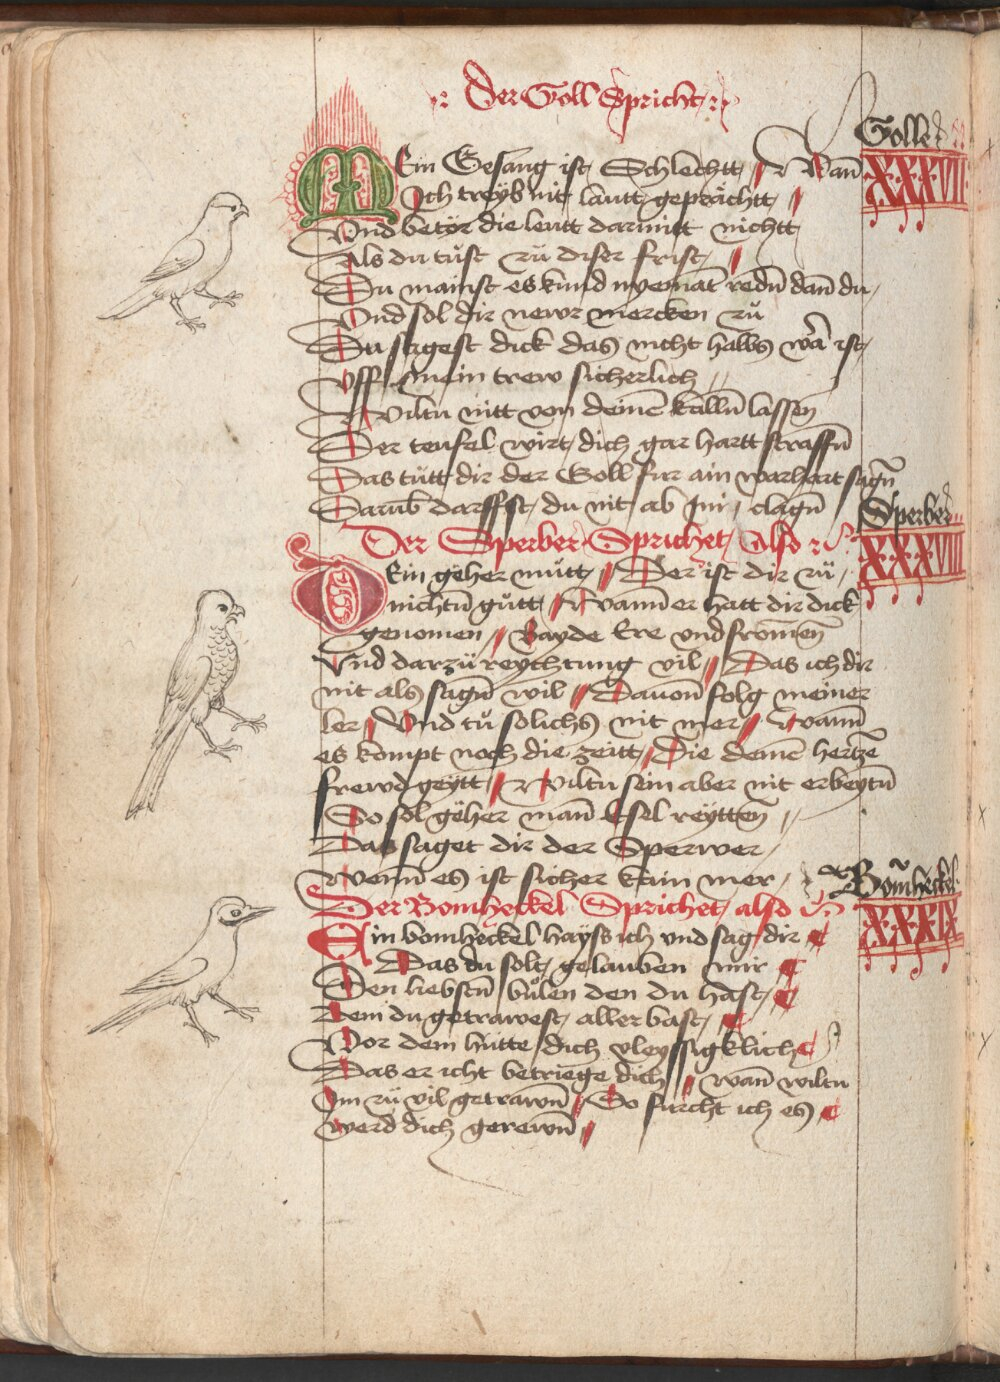 Der Goll Spricht
Golle
MEin Gesang ist Schlechtt Wan̄
XXXVII
Ich treyb nit lautt geprächtt
Vnd betör die leutt darmitt nichtt
Als du tůst zů diser frist
Du mainst es kund nyemāt redn̄ dan̄ du
Vnd sol dir newr mercken zů
Du sagest dick das nicht halbs wār ist
Vff mein trew sicherlich
Wiltu nitt von deinē kalln̄ lassen
Der teufel wirt dich gar hartt straffn̄
Das tůtt dir der Goll fur ain warhait sagn̄
Darūb darffst du nit ab Im clagn̄
Sperber
Der Sperber Sprichet Also
XXXVIII
DEin gëher můtt Der ist dir zů
nichtn̄ gůtt Wann er hatt dir dick
genomen Bayde Ere vnd fromen̄
Vnd darzů reychtung vil Das ich dir
nit als sagn̄ wil Dauon̄ folg meiner
ler Vnd tů solichs nit mer Wann̄
es kompt noch die zeitt Die deinē hertzē
frewd geytt Wiltu sein aber nit erbeytn̄
So sol gëher man̄ Esel reytten̄
Das saget dir der Sperwer
Wenn̄ es ist sicher kain mer
Bom̄heckel
Der Bomheckel Sprichet also
XXXIX
Ein bomheckel hayss ich vnd sag dir
Das du solt gelauben mir
Den liebstn̄ bůlen den du hast
Dem du getrawest aller bast
Vor dem hütte dich vleyssigklich
Das er icht betriege dich wan̄ wiltu
Im zů vil getrawn̄ So furcht ich es
werd dich gerewn̄